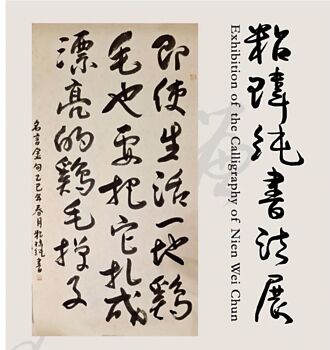 粘暐純書法展
Exhibition of the Calligraphy of Nien Wei Chun
即使生活一地鷄
毛也要把它扎成
漂亮的鷄毛撢子
名言金句乙巳年春月粘暐純書